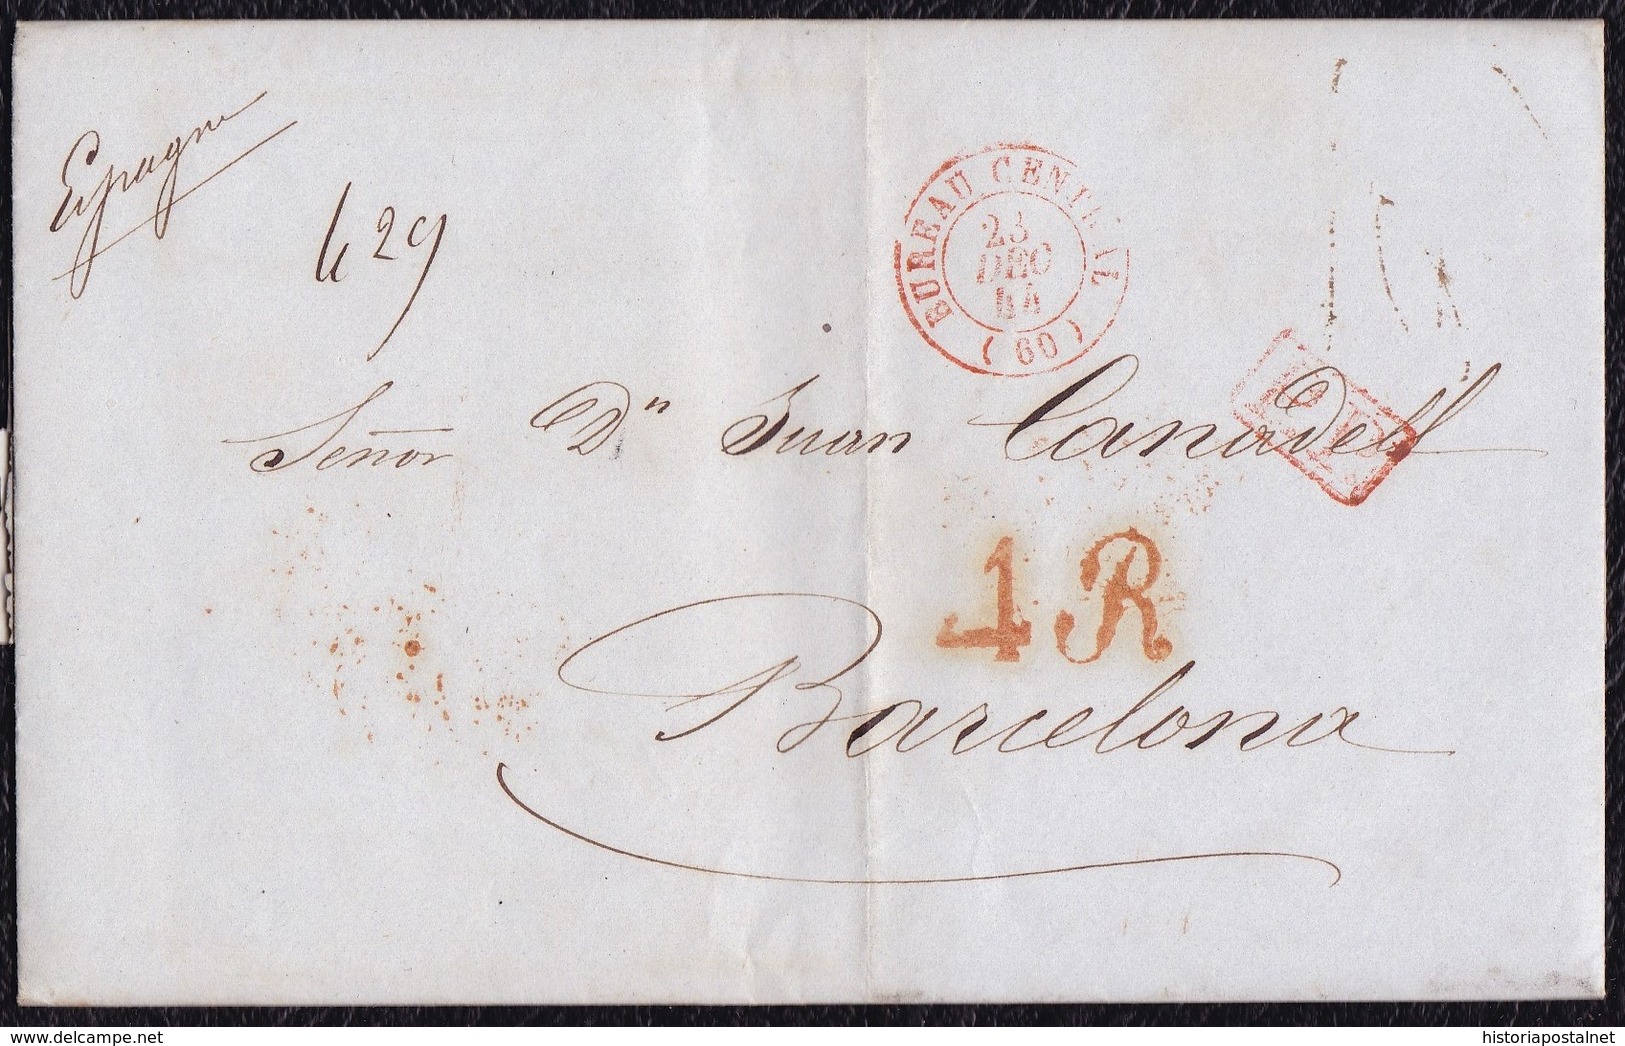 Espagne
429
BUREAU CENTRAL
23
DEC
44
(60)
P.P.
Señor Dn Juan Canadell
4R
Barcelona
historiapostalnet